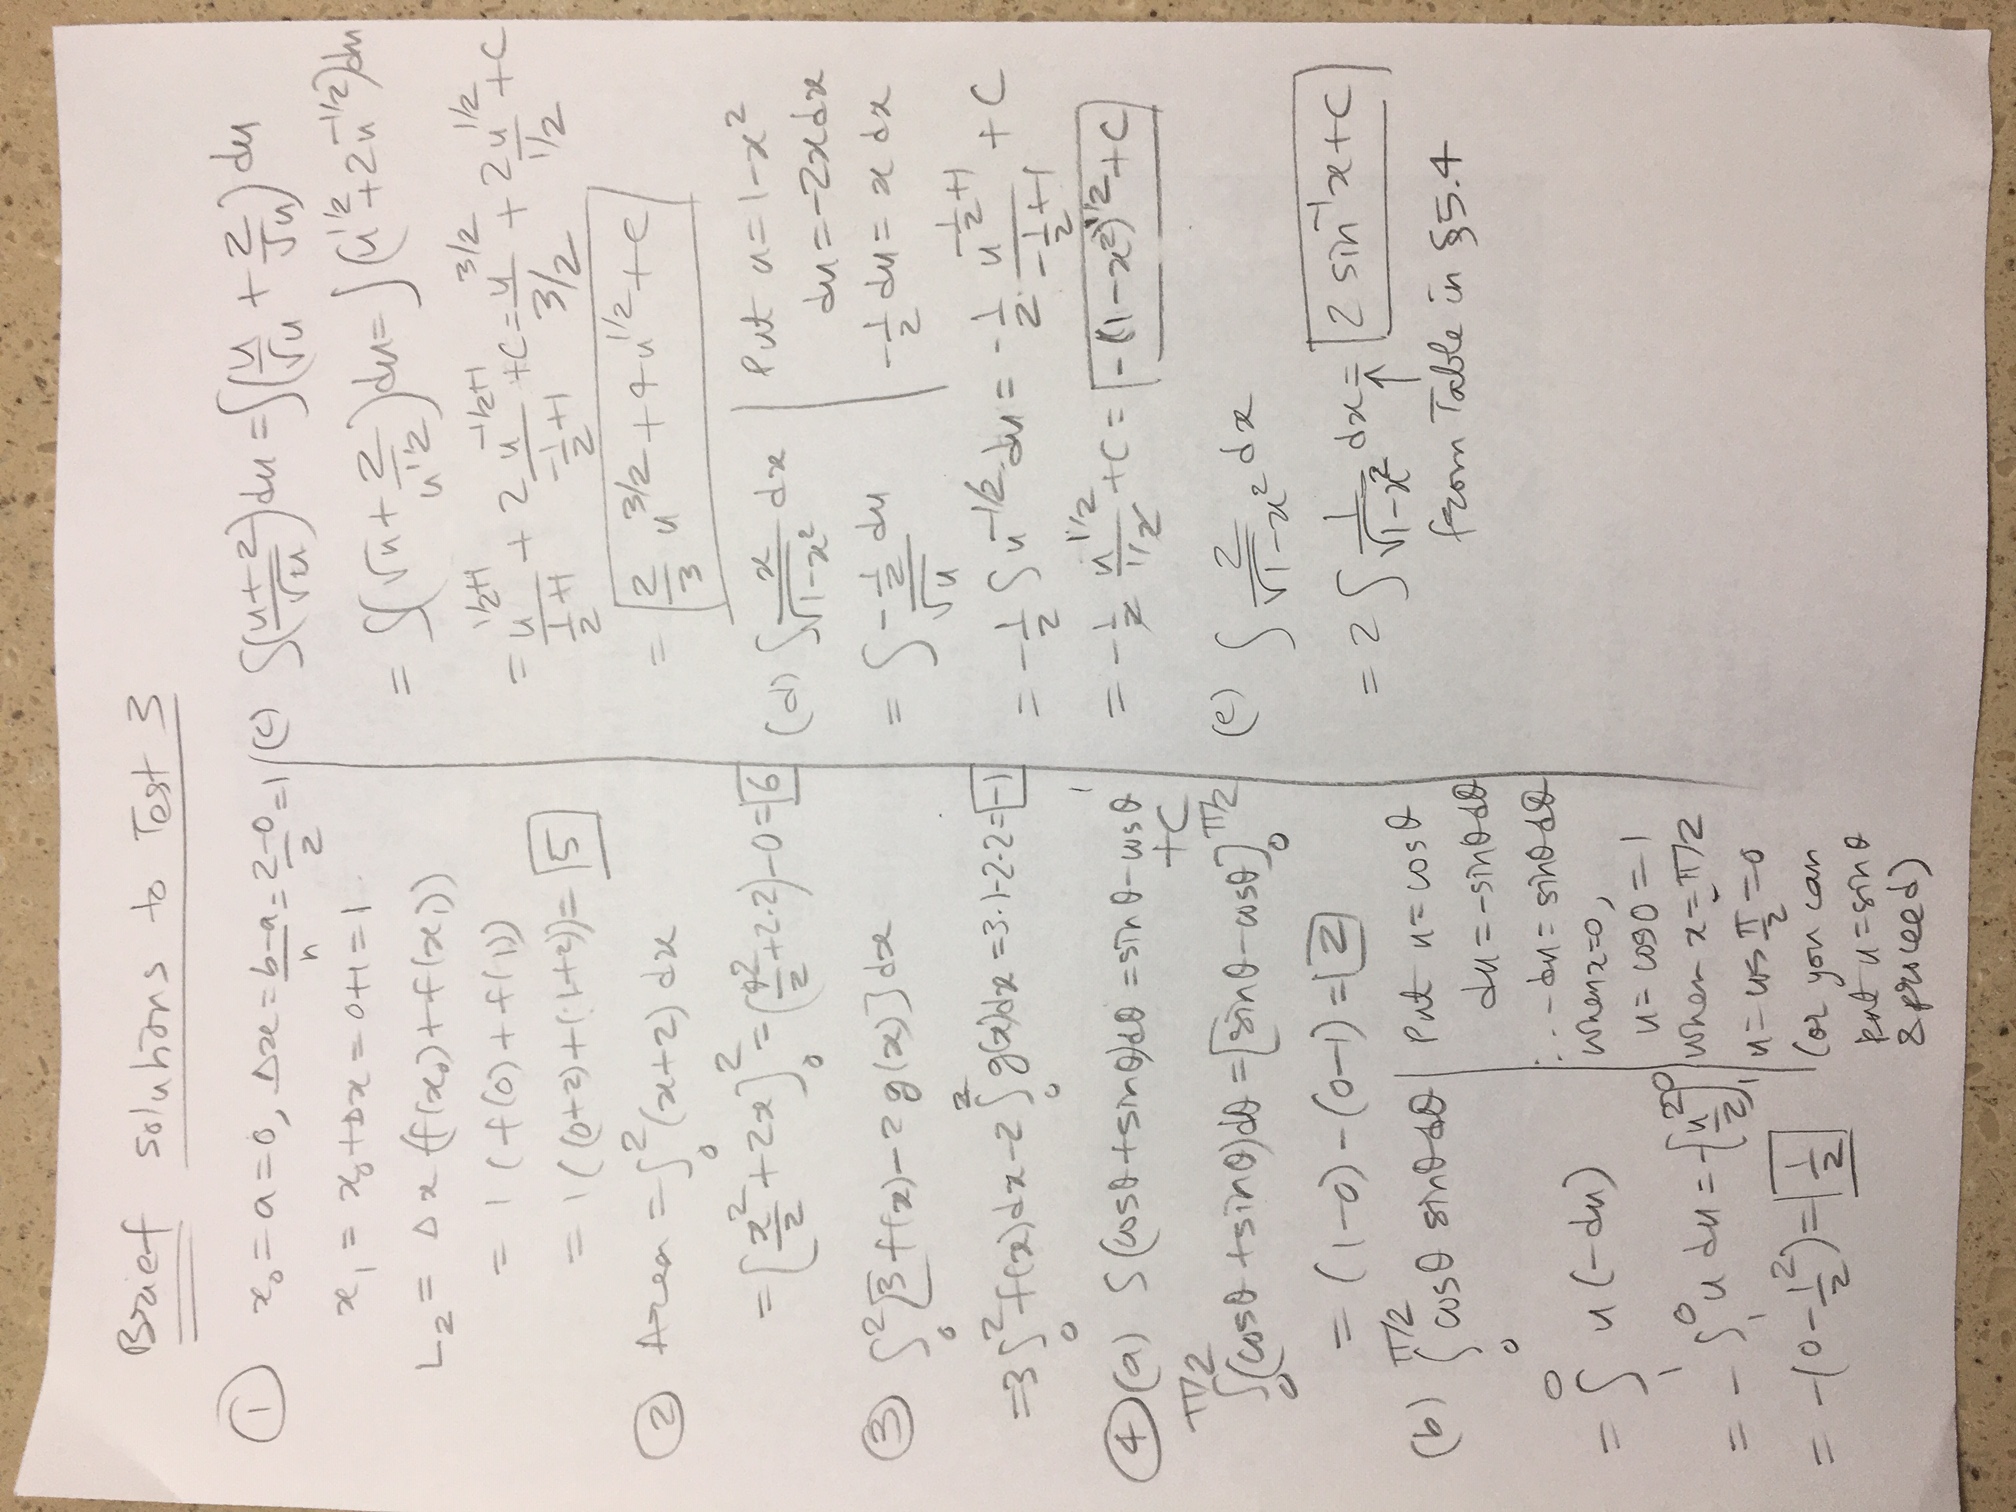 Brief solutions to Test 3
① x₀ = a = 0, Δx = (b-a)/n = (2-0)/2 = 1
x₁ = x₀ + Δx = 0+1 = 1
L₂ = Δx (f(x₀) + f(x₁))
= 1 (f(0) + f(1))
= 1 ((0+2) + (1+2)) = 5
② Area = ∫₀² (x+2) dx
= [x²/2 + 2x]₀² = (2²/2 + 2·2) - 0 = 6
③ ∫₀² [3 f(x) - 2 g(x)] dx
= 3 ∫₀² f(x) dx - 2 ∫₀² g(x) dx = 3·1 - 2·2 = -1
④ (a) ∫ (cosθ + sinθ) dθ = sinθ - cosθ + C
∫₀^(π/2) (cosθ + sinθ) dθ = [sinθ - cosθ]₀^(π/2)
= (1-0) - (0-1) = 2
(b) ∫₀^(π/2) cosθ sinθ dθ
= ∫₁⁰ u (-du)
= - ∫₁⁰ u du = -[u²/2]₁⁰
= -(0 - 1²/2) = 1/2
Put u = cosθ
du = -sinθ dθ
∴ -du = sinθ dθ
when x=0,
u = cos0 = 1
when x = π/2
u = cos π/2 = 0
(or you can
put u = sinθ
& proceed)
(c) ∫ ((u+2)/√u) du = ∫ (u/√u + 2/√u) du
= ∫ (√u + 2/u^(1/2)) du = ∫ (u^(1/2) + 2u^(-1/2)) du
= u^(1/2+1)/(1/2+1) + 2 u^(-1/2+1)/(-1/2+1) + C = u^(3/2)/(3/2) + 2 u^(1/2)/(1/2) + C
= 2/3 u^(3/2) + 4 u^(1/2) + C
(d) ∫ x/√(1-x²) dx
= ∫ (-1/2 du)/√u
Put u = 1-x²
du = -2x dx
-1/2 du = x dx
= -1/2 ∫ u^(-1/2) du = -1/2 · u^(-1/2+1)/(-1/2+1) + C
= -1/2 u^(1/2)/(1/2) + C = -(1-x²)^(1/2) + C
(e) ∫ 2/√(1-x²) dx
= 2 ∫ 1/√(1-x²) dx = 2 sin⁻¹x + C
↑
from Table in §5.4